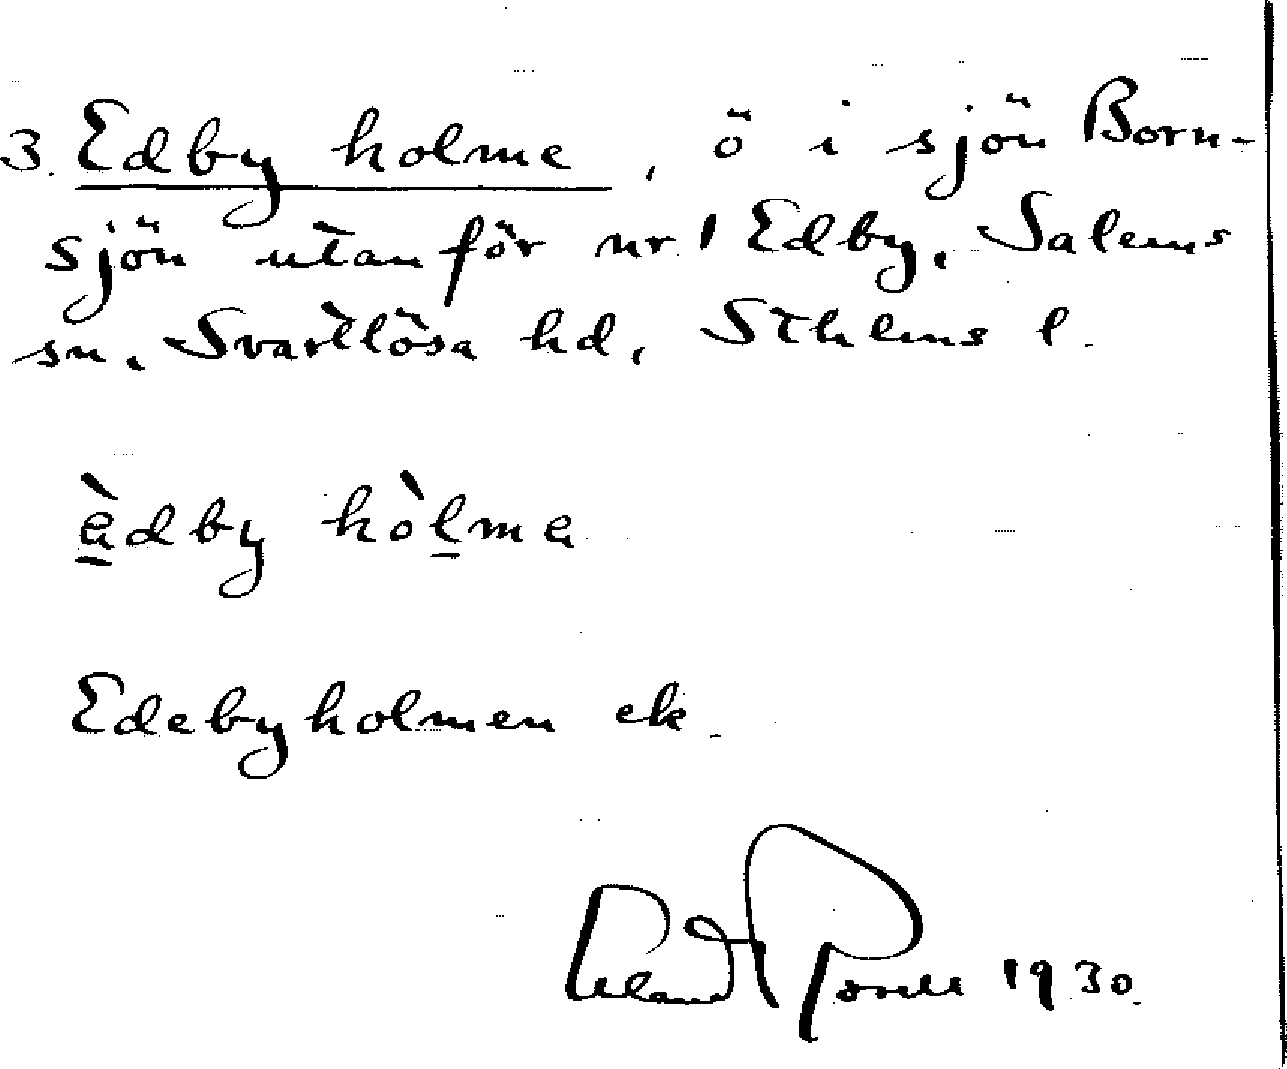 3. Edby holme, ö i sjön Born-
sjön utanför nr 1 Edby, Salems
sn, Svartlösa hd, Sthlms l.
èdby hòlme
Edebyholmen ek.
1930